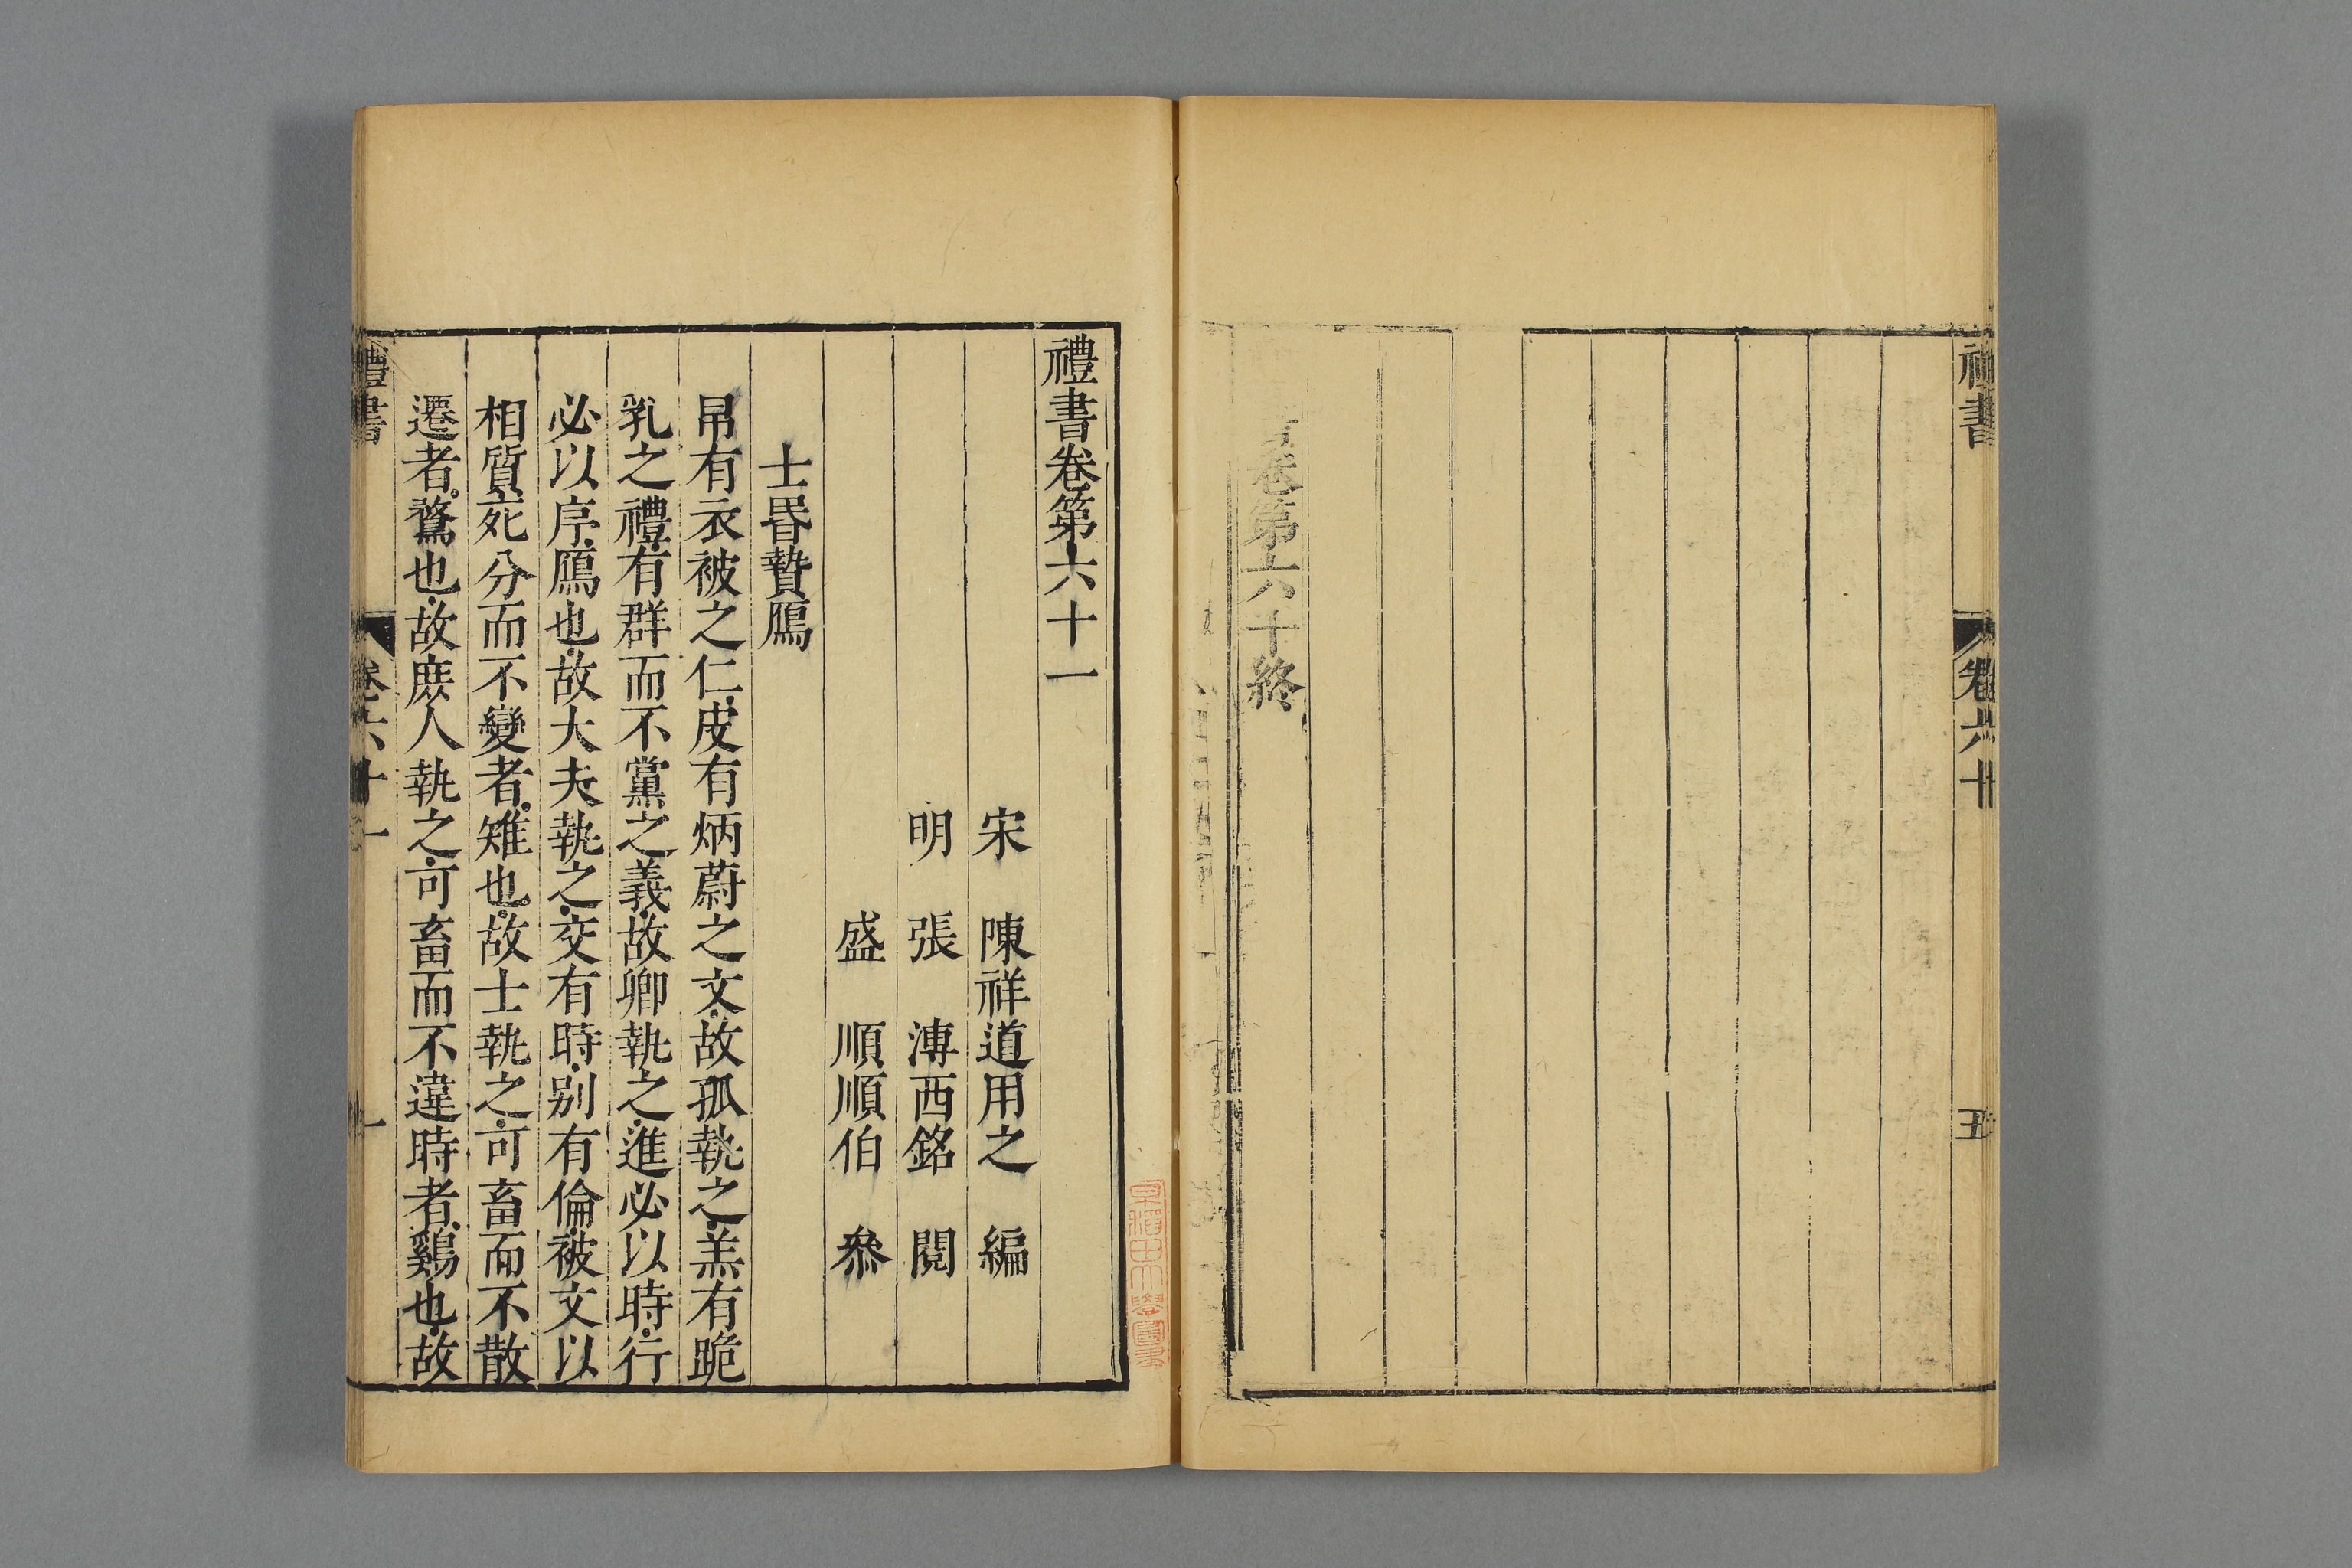 禮書
卷六十
五
書卷第六十終
禮書卷第六十一
宋　陳祥道用之　編
明　張　溥西銘　閱
盛　順順伯　叅
士昏贄鴈
帛有衣被之仁皮有炳蔚之文故孤執之羔有跪
乳之禮有群而不黨之義故卿執之進必以時行
必以序鴈也故大夫執之交有時别有倫被文以
相質死分而不變者雉也故士執之可畜而不散
遷者鶩也故庶人執之可畜而不違時者鷄也故
禮書
卷六十一
一
早稲田大學圖書